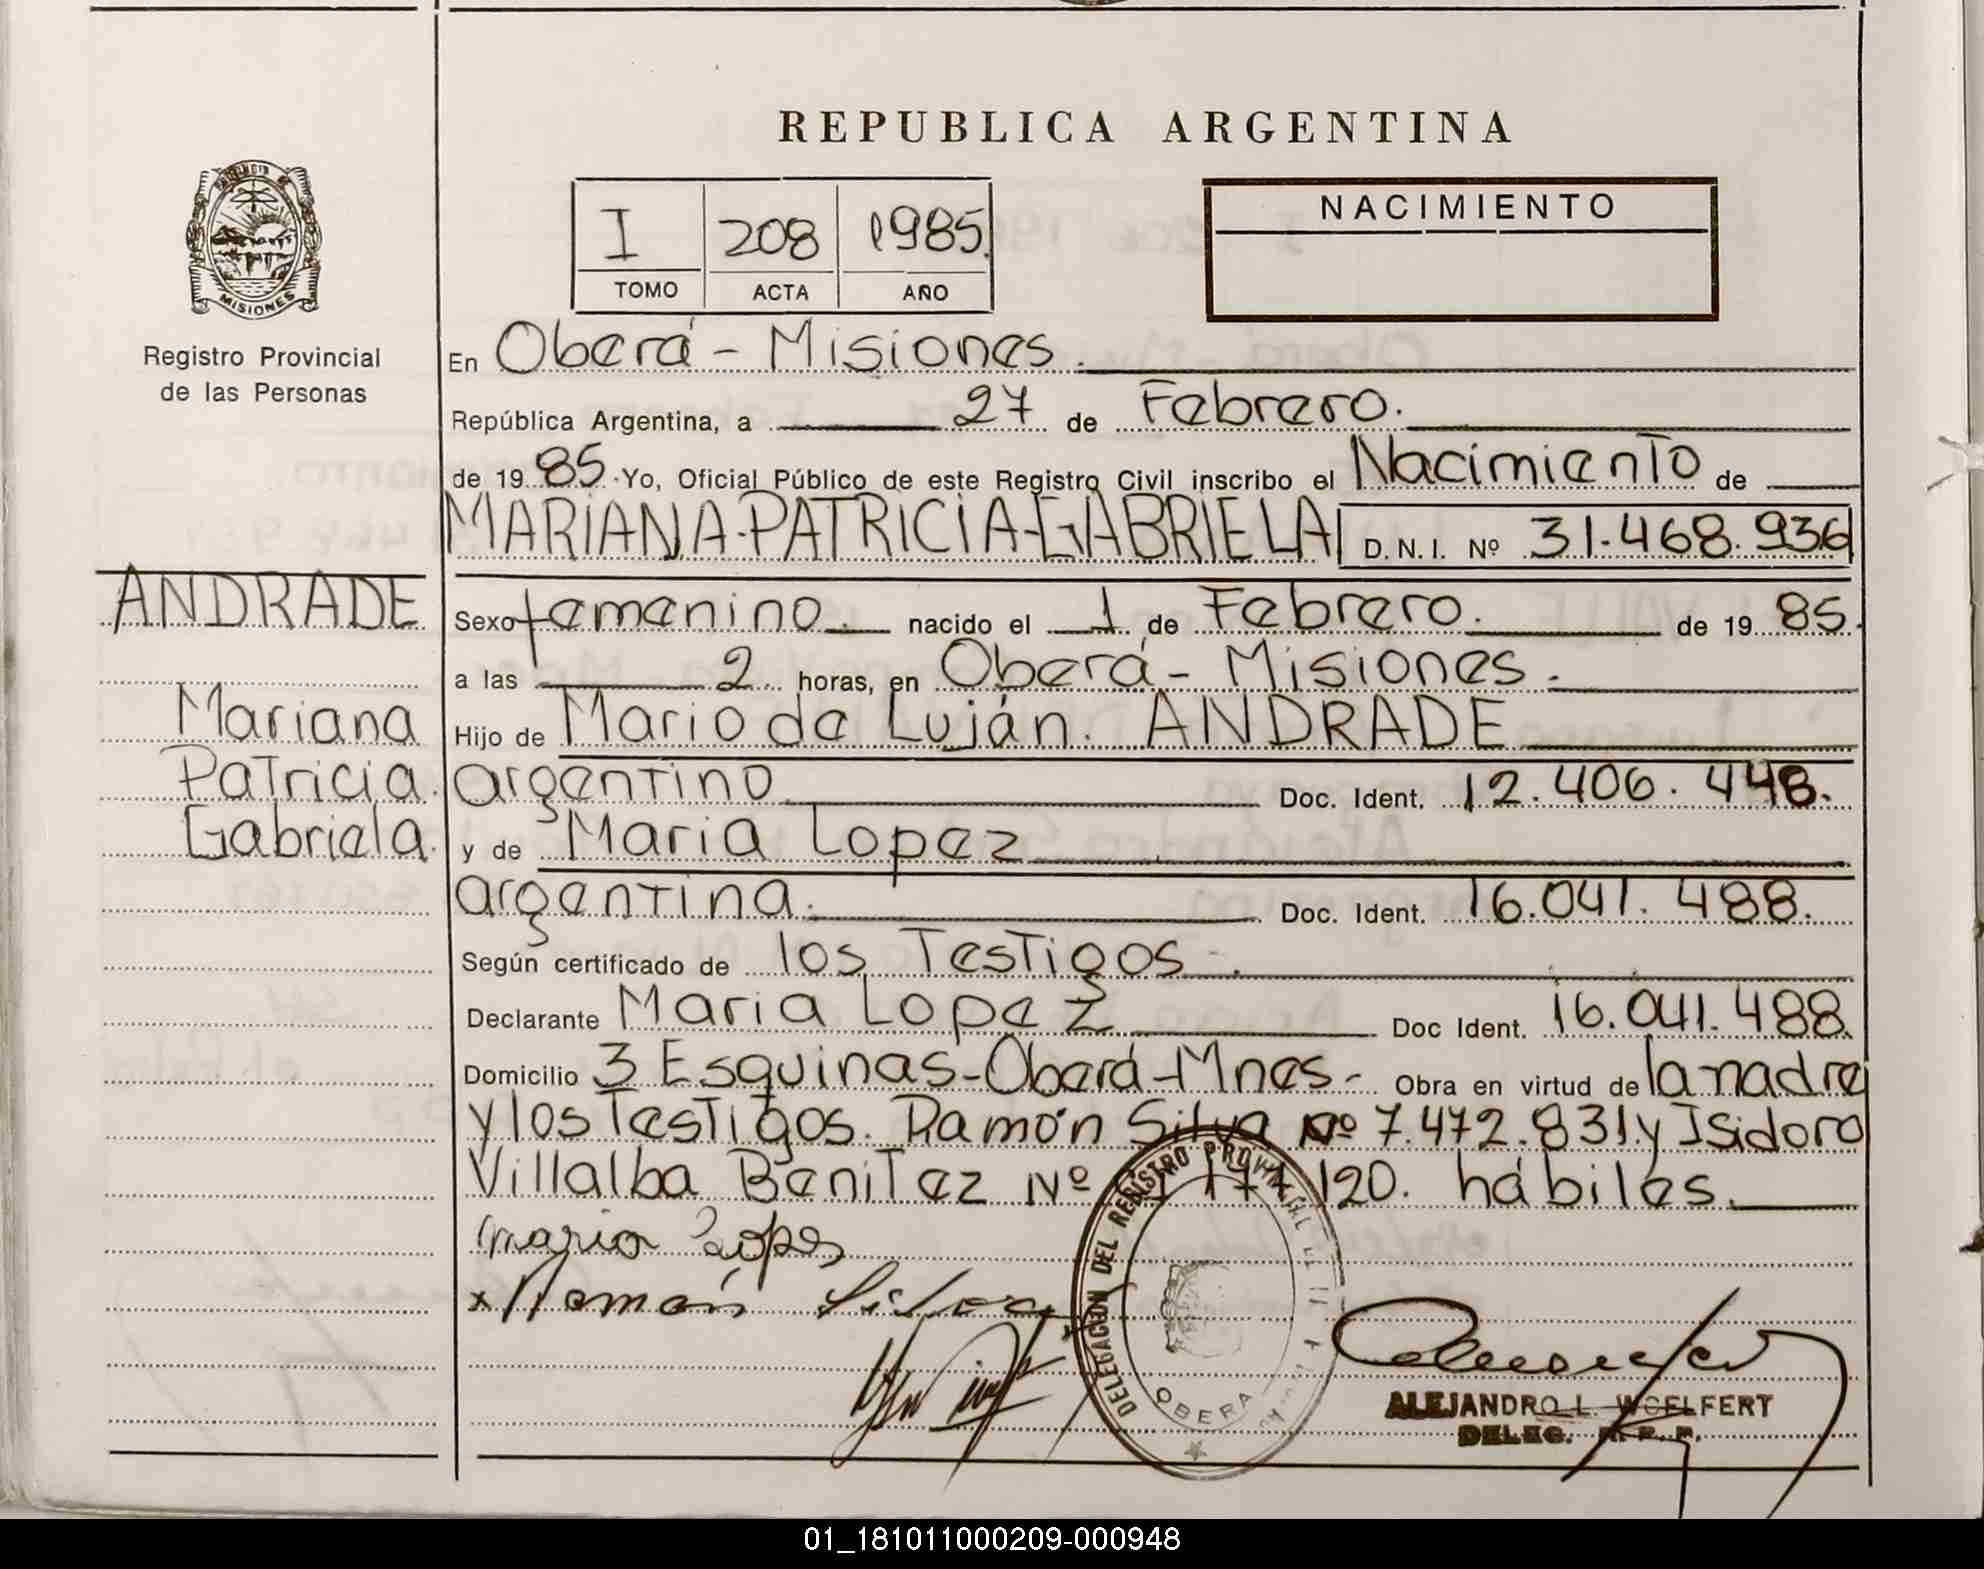 REPUBLICA ARGENTINA
PROVINCIA DE
MISIONES
Registro Provincial
de las Personas
I 208 1985
TOMO ACTA AÑO
NACIMIENTO
En Oberá - Misiones.
República Argentina, a 27 de Febrero.
de 19 85. Yo, Oficial Público de este Registro Civil inscribo el Nacimiento de
MARIANA-PATRICIA-GABRIELA D.N.I. Nº 31.468.936
ANDRADE
Sexo femenino. nacido el 1 de Febrero. de 19 85.
a las 2 horas, en Oberá - Misiones.
Mariana
Hijo de Mario de Luján. ANDRADE
Patricia.
argentino Doc. Ident. 12.406.448.
Gabriela.
y de Maria Lopez
argentina. Doc. Ident. 16.041.488.
Según certificado de los Testigos -.
Declarante Maria Lopez Doc Ident. 16.041.488.
Domicilio 3 Esquinas-Oberá-Mnes- Obra en virtud de la madre
y los Testigos. Ramón Silva Nº 7.472.831 y Isidoro
Villalba Benitez Nº 177 120. hábiles.
maria Lopes
x Ramón Silva
DELEGACION DEL REGISTRO PROVINCIAL
OBERA
ALEJANDRO L. WOELFERT
DELEG. R. P. P.
01_181011000209-000948